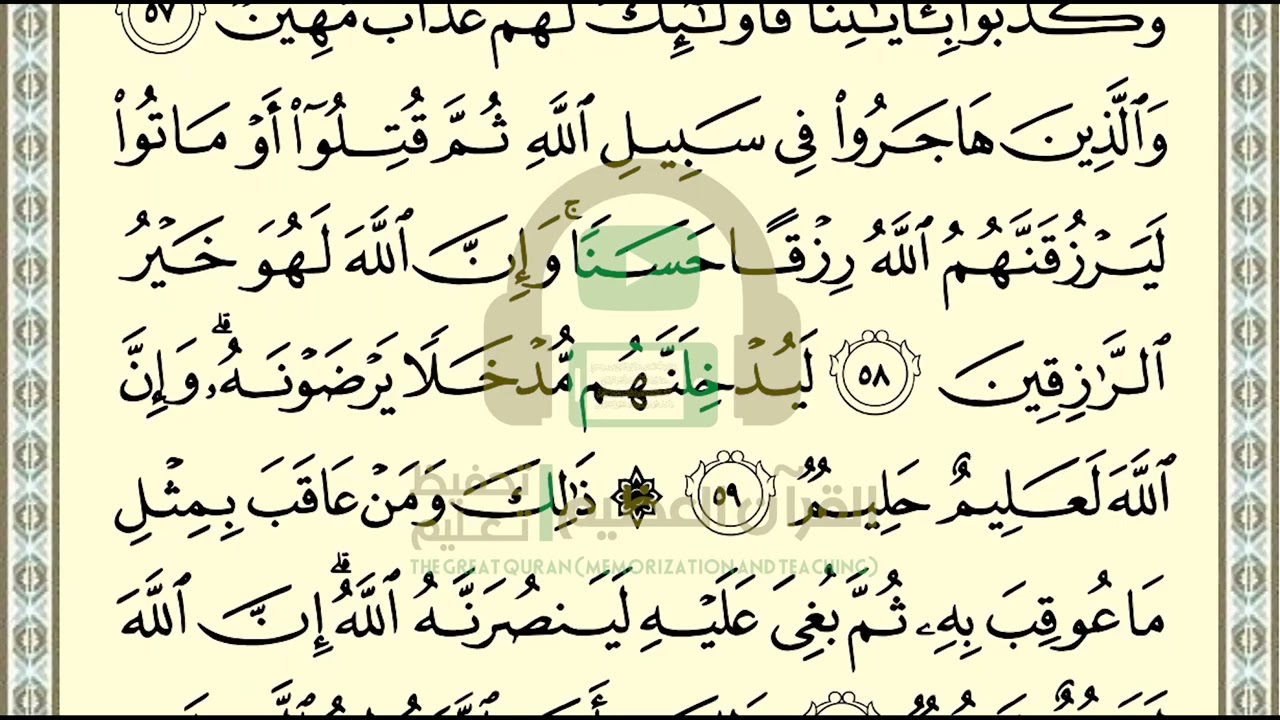 وَكَذَّبُوا۟ بِـَٔايَـٰتِنَا فَأُو۟لَـٰٓئِكَ لَهُمْ عَذَابٌ مُّهِينٌ ٥٧
وَٱلَّذِينَ هَاجَرُوا۟ فِى سَبِيلِ ٱللَّهِ ثُمَّ قُتِلُوٓا۟ أَوْ مَاتُوا۟
لَيَرْزُقَنَّهُمُ ٱللَّهُ رِزْقًا حَسَنًا ۚ وَإِنَّ ٱللَّهَ لَهُوَ خَيْرُ
ٱلرَّٰزِقِينَ ٥٨ لَيُدْخِلَنَّهُم مُّدْخَلًا يَرْضَوْنَهُۥ ۗ وَإِنَّ
ٱللَّهَ لَعَلِيمٌ حَلِيمٌ ٥٩ ۞ ذَٰلِكَ وَمَنْ عَاقَبَ بِمِثْلِ
القرآن العظيم تحفيظ تعليم
THE GREAT QURAN (MEMORIZATION AND TEACHING)
مَا عُوقِبَ بِهِۦ ثُمَّ بُغِىَ عَلَيْهِ لَيَنصُرَنَّهُ ٱللَّهُ ۗ إِنَّ ٱللَّهَ